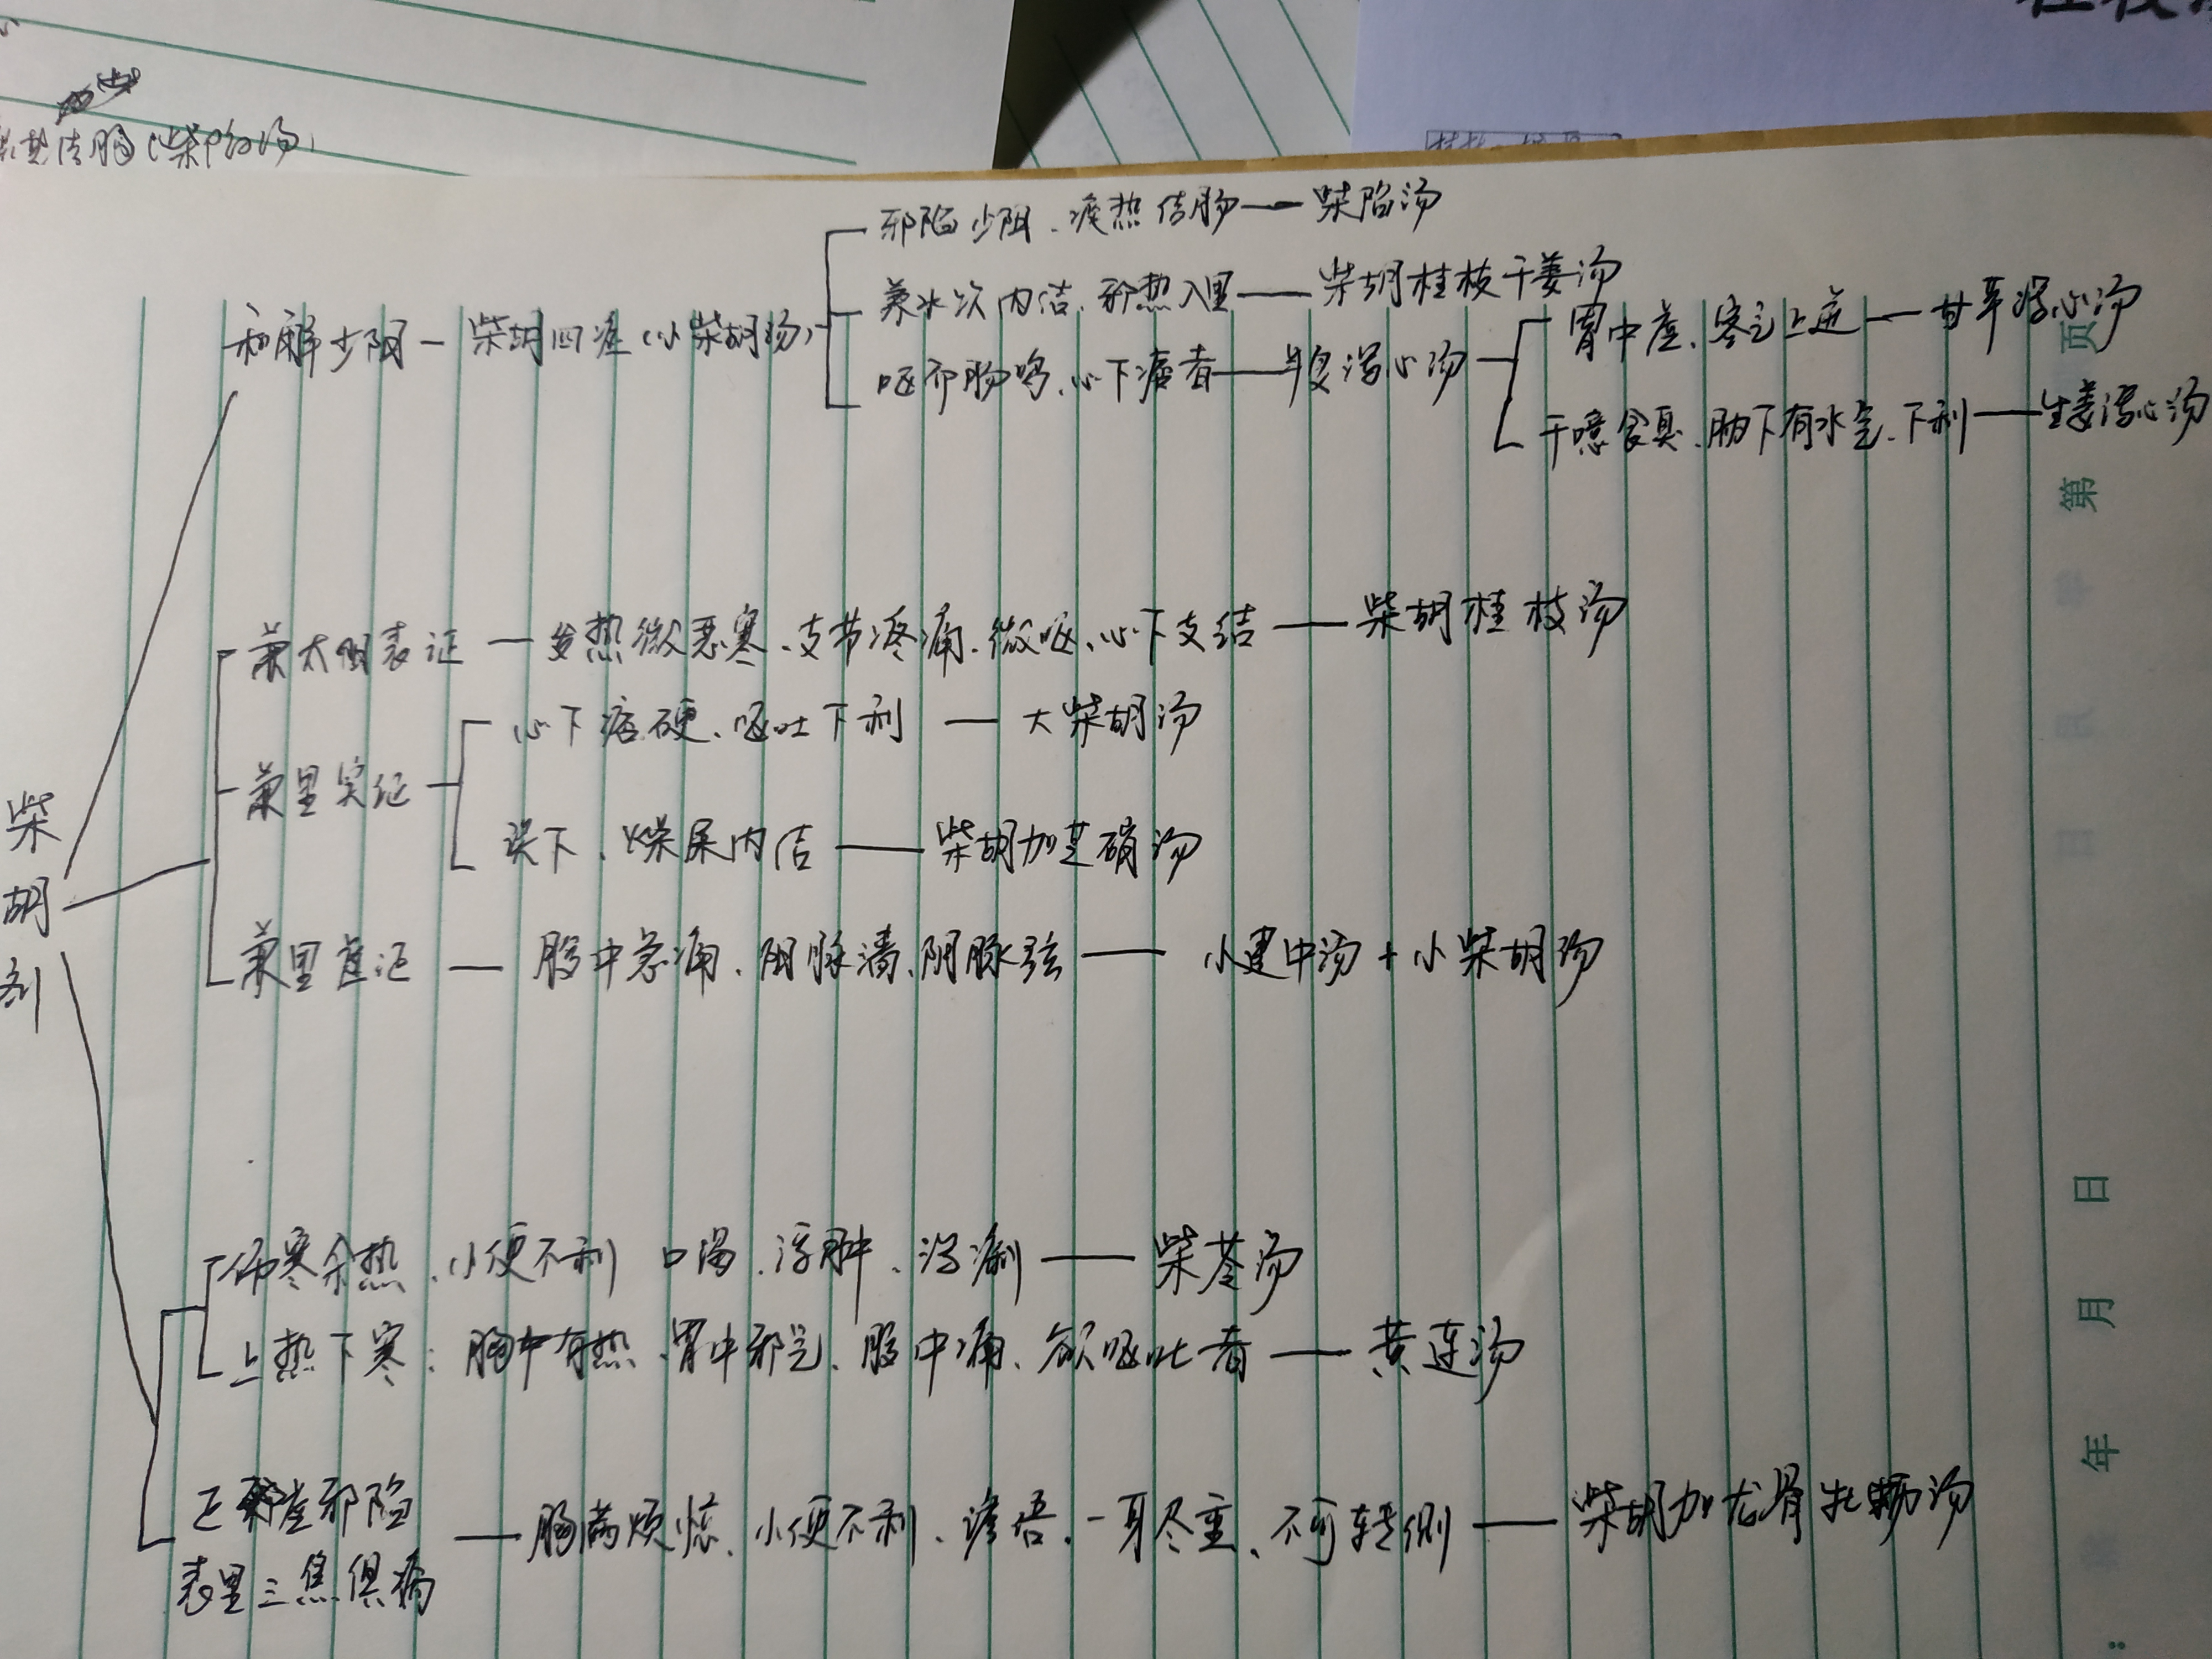 柴胡剂
和解少阳—柴胡四症(小柴胡汤)
邪陷少阳、痰热结肠—柴陷汤
兼水饮内结、邪热入里—柴胡桂枝干姜汤
呕而肠鸣、心下痞者—半夏泻心汤
胃中虚、客气上逆—甘草泻心汤
干噫食臭、胁下有水气、下利—生姜泻心汤
兼太阳表证—发热微恶寒、支节疼痛、微呕、心下支结—柴胡桂枝汤
兼里实证
心下痞硬、呕吐下利—大柴胡汤
误下、燥屎内结—柴胡加芒硝汤
兼里虚证—腹中急痛、阳脉濇、阴脉弦—小建中汤+小柴胡汤
伤寒余热、小便不利 口渴、浮肿、泻痢—柴苓汤
上热下寒:胸中有热、胃中邪气、腹中痛、欲呕吐者—黄连汤
正虚邪陷
表里三焦俱病
—胸满烦惊、小便不利、谵语、一身尽重、不可转侧—柴胡加龙骨牡蛎汤
第 页
年 月 日